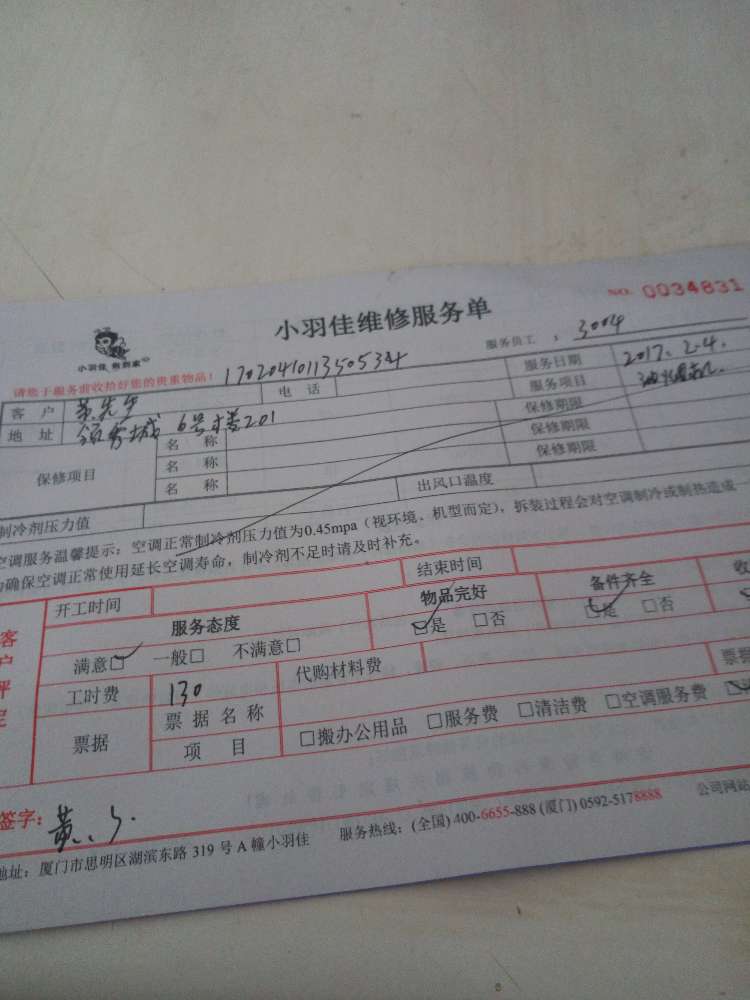 NO. 0034831
小羽佳维修服务单
小羽佳
服务员工：3004
请您于服务前收拾好您的贵重物品！
1702041011350534
客户
黄先生
电话
服务日期
2017.2-4.
地址
领秀城 6号楼201
服务项目
油烟机
保修项目
名称
保修期限
名称
保修期限
名称
保修期限
制冷剂压力值
出风口温度
空调服务温馨提示：空调正常制冷剂压力值为0.45mpa（视环境、机型而定），拆装过程会对空调制冷或制热造成一
确保空调正常使用延长空调寿命，制冷剂不足时请及时补充。
开工时间
结束时间
客户评定
服务态度
物品完好
备件齐全
收
满意□ 一般□ 不满意□
□是 □否
□是 □否
工时费
130
代购材料费
票据
票据名称
票据
项目
□搬办公用品 □服务费 □清洁费 □空调服务费
签字：黄
地址：厦门市思明区湖滨东路 319 号 A 幢小羽佳 服务热线：(全国) 400-6655-888 (厦门) 0592-5178888 公司网站